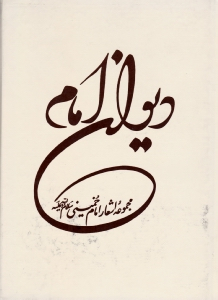 دیوان امام
مجموعه اشعار امام خمینی سلام‌الله‌علیه